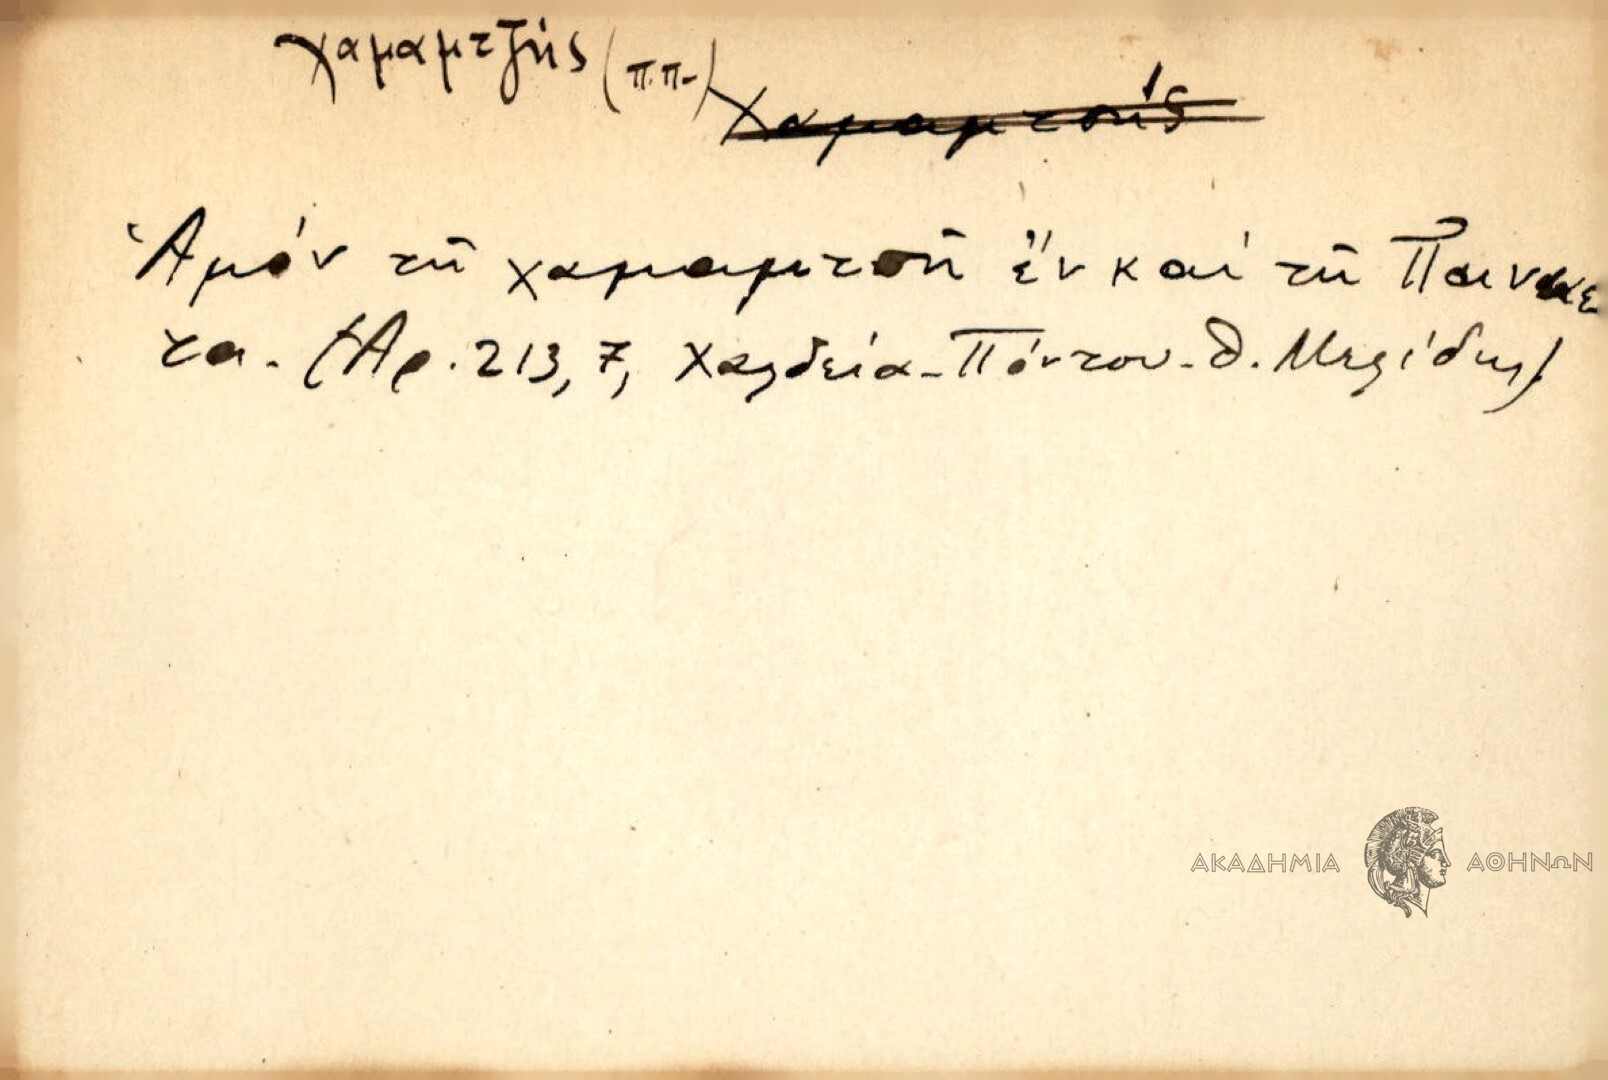 χαμαμτζής (π.π.)
Χαμαμτσής
Ἀμόν τῆ χαμαμτσῆ ἔν καί τῆ
τα. (Αρ. 213, 7, Χαλδεία - Πόντου - Θ. Μελίδης)
ΑΚΑΔΗΜΙΑ ΑΘΗΝΩΝ